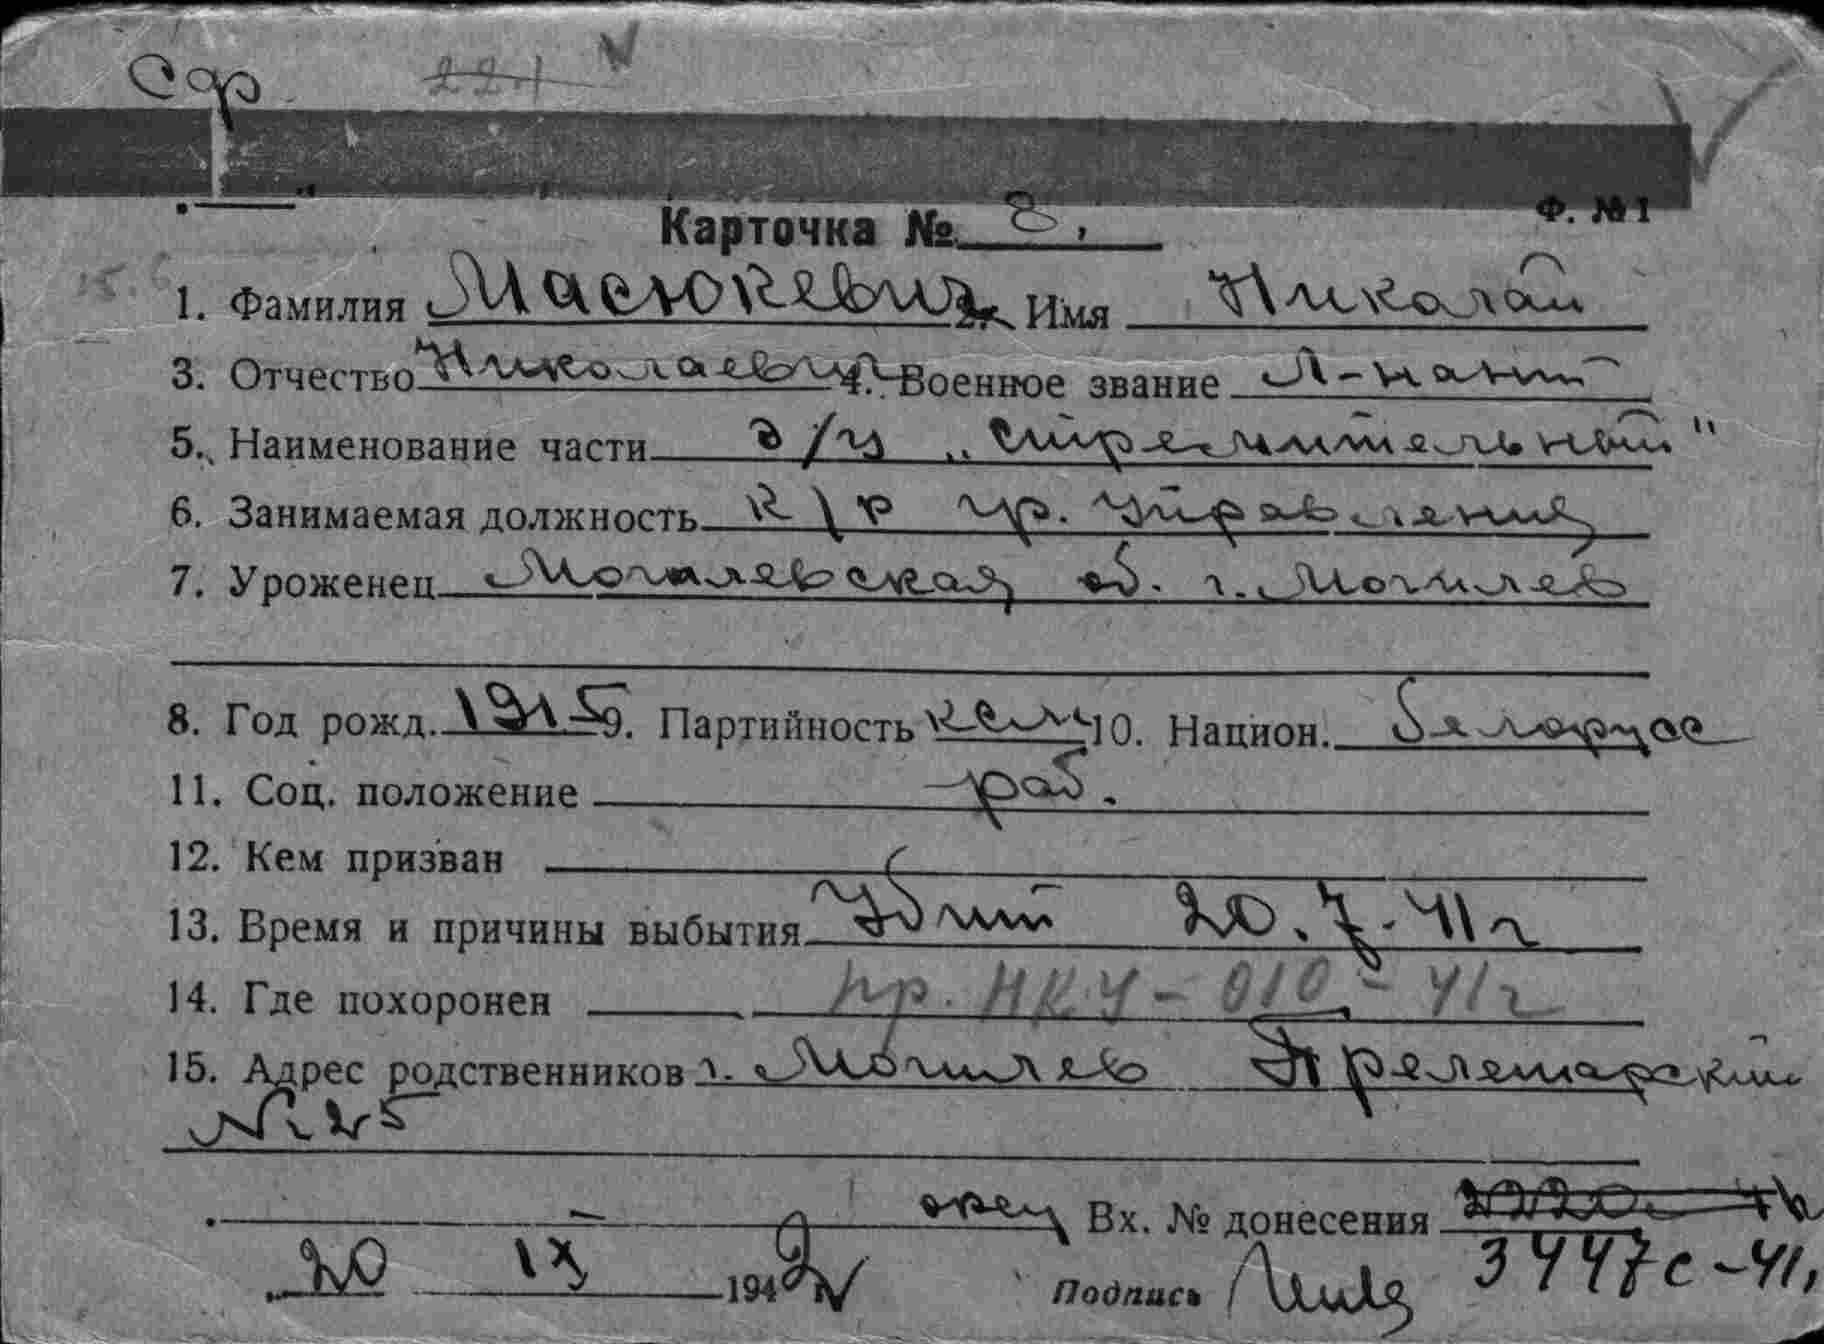 Сф 221
Ф. № 1
Карточка № 8,
15.6
1. Фамилия Масюкевич 2. Имя Николай
3. Отчество Николаевич 4. Военное звание Л-нант
5. Наименование части э/м „Стремительный"
6. Занимаемая должность к/р гр. Управления
7. Уроженец Могилевская об. г. Могилев
8. Год рожд. 1915 9. Партийность ксм 10. Национ. белорусс
11. Соц. положение раб.
12. Кем призван
13. Время и причины выбытия Убит 20.7.41г
14. Где похоронен пр. НКУ-010-41г
15. Адрес родственников г. Могилев Прелетарский
№ 25
Вх. № донесения
20 IX 1942 Подпись 3447с-41,